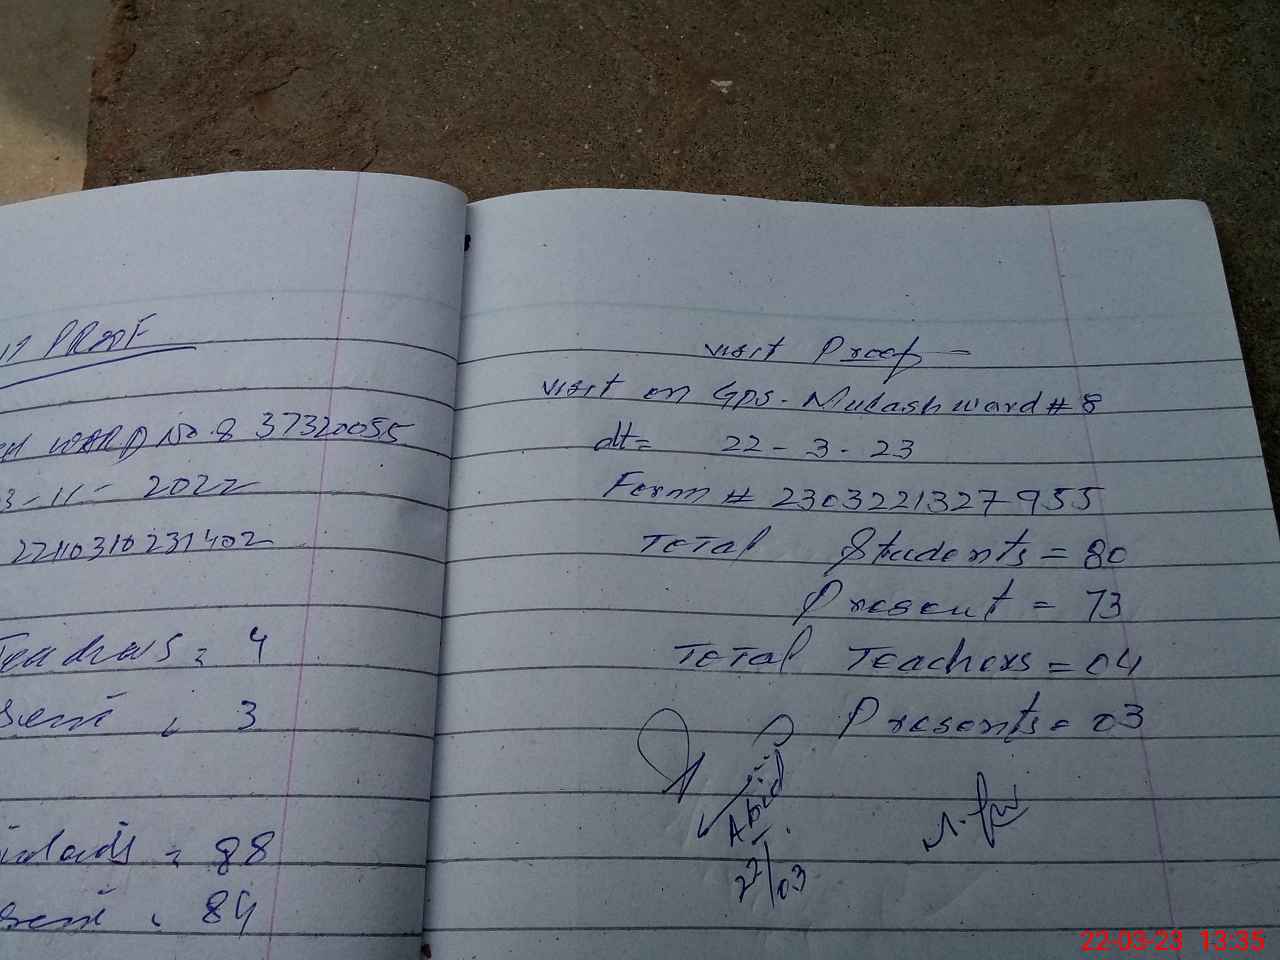 PROOF
WARD NO. 8 37320055
3-11-2022
Teachers = 4
3
= 88
84
visit Proof -
visit on Gps. Mulash ward # 8
dt= 22-3-23
Form # 2303221327955
Total Students = 80
Present = 73
Total Teachers = 04
Presents = 03
Abid
22/03
22-03-23 13:35